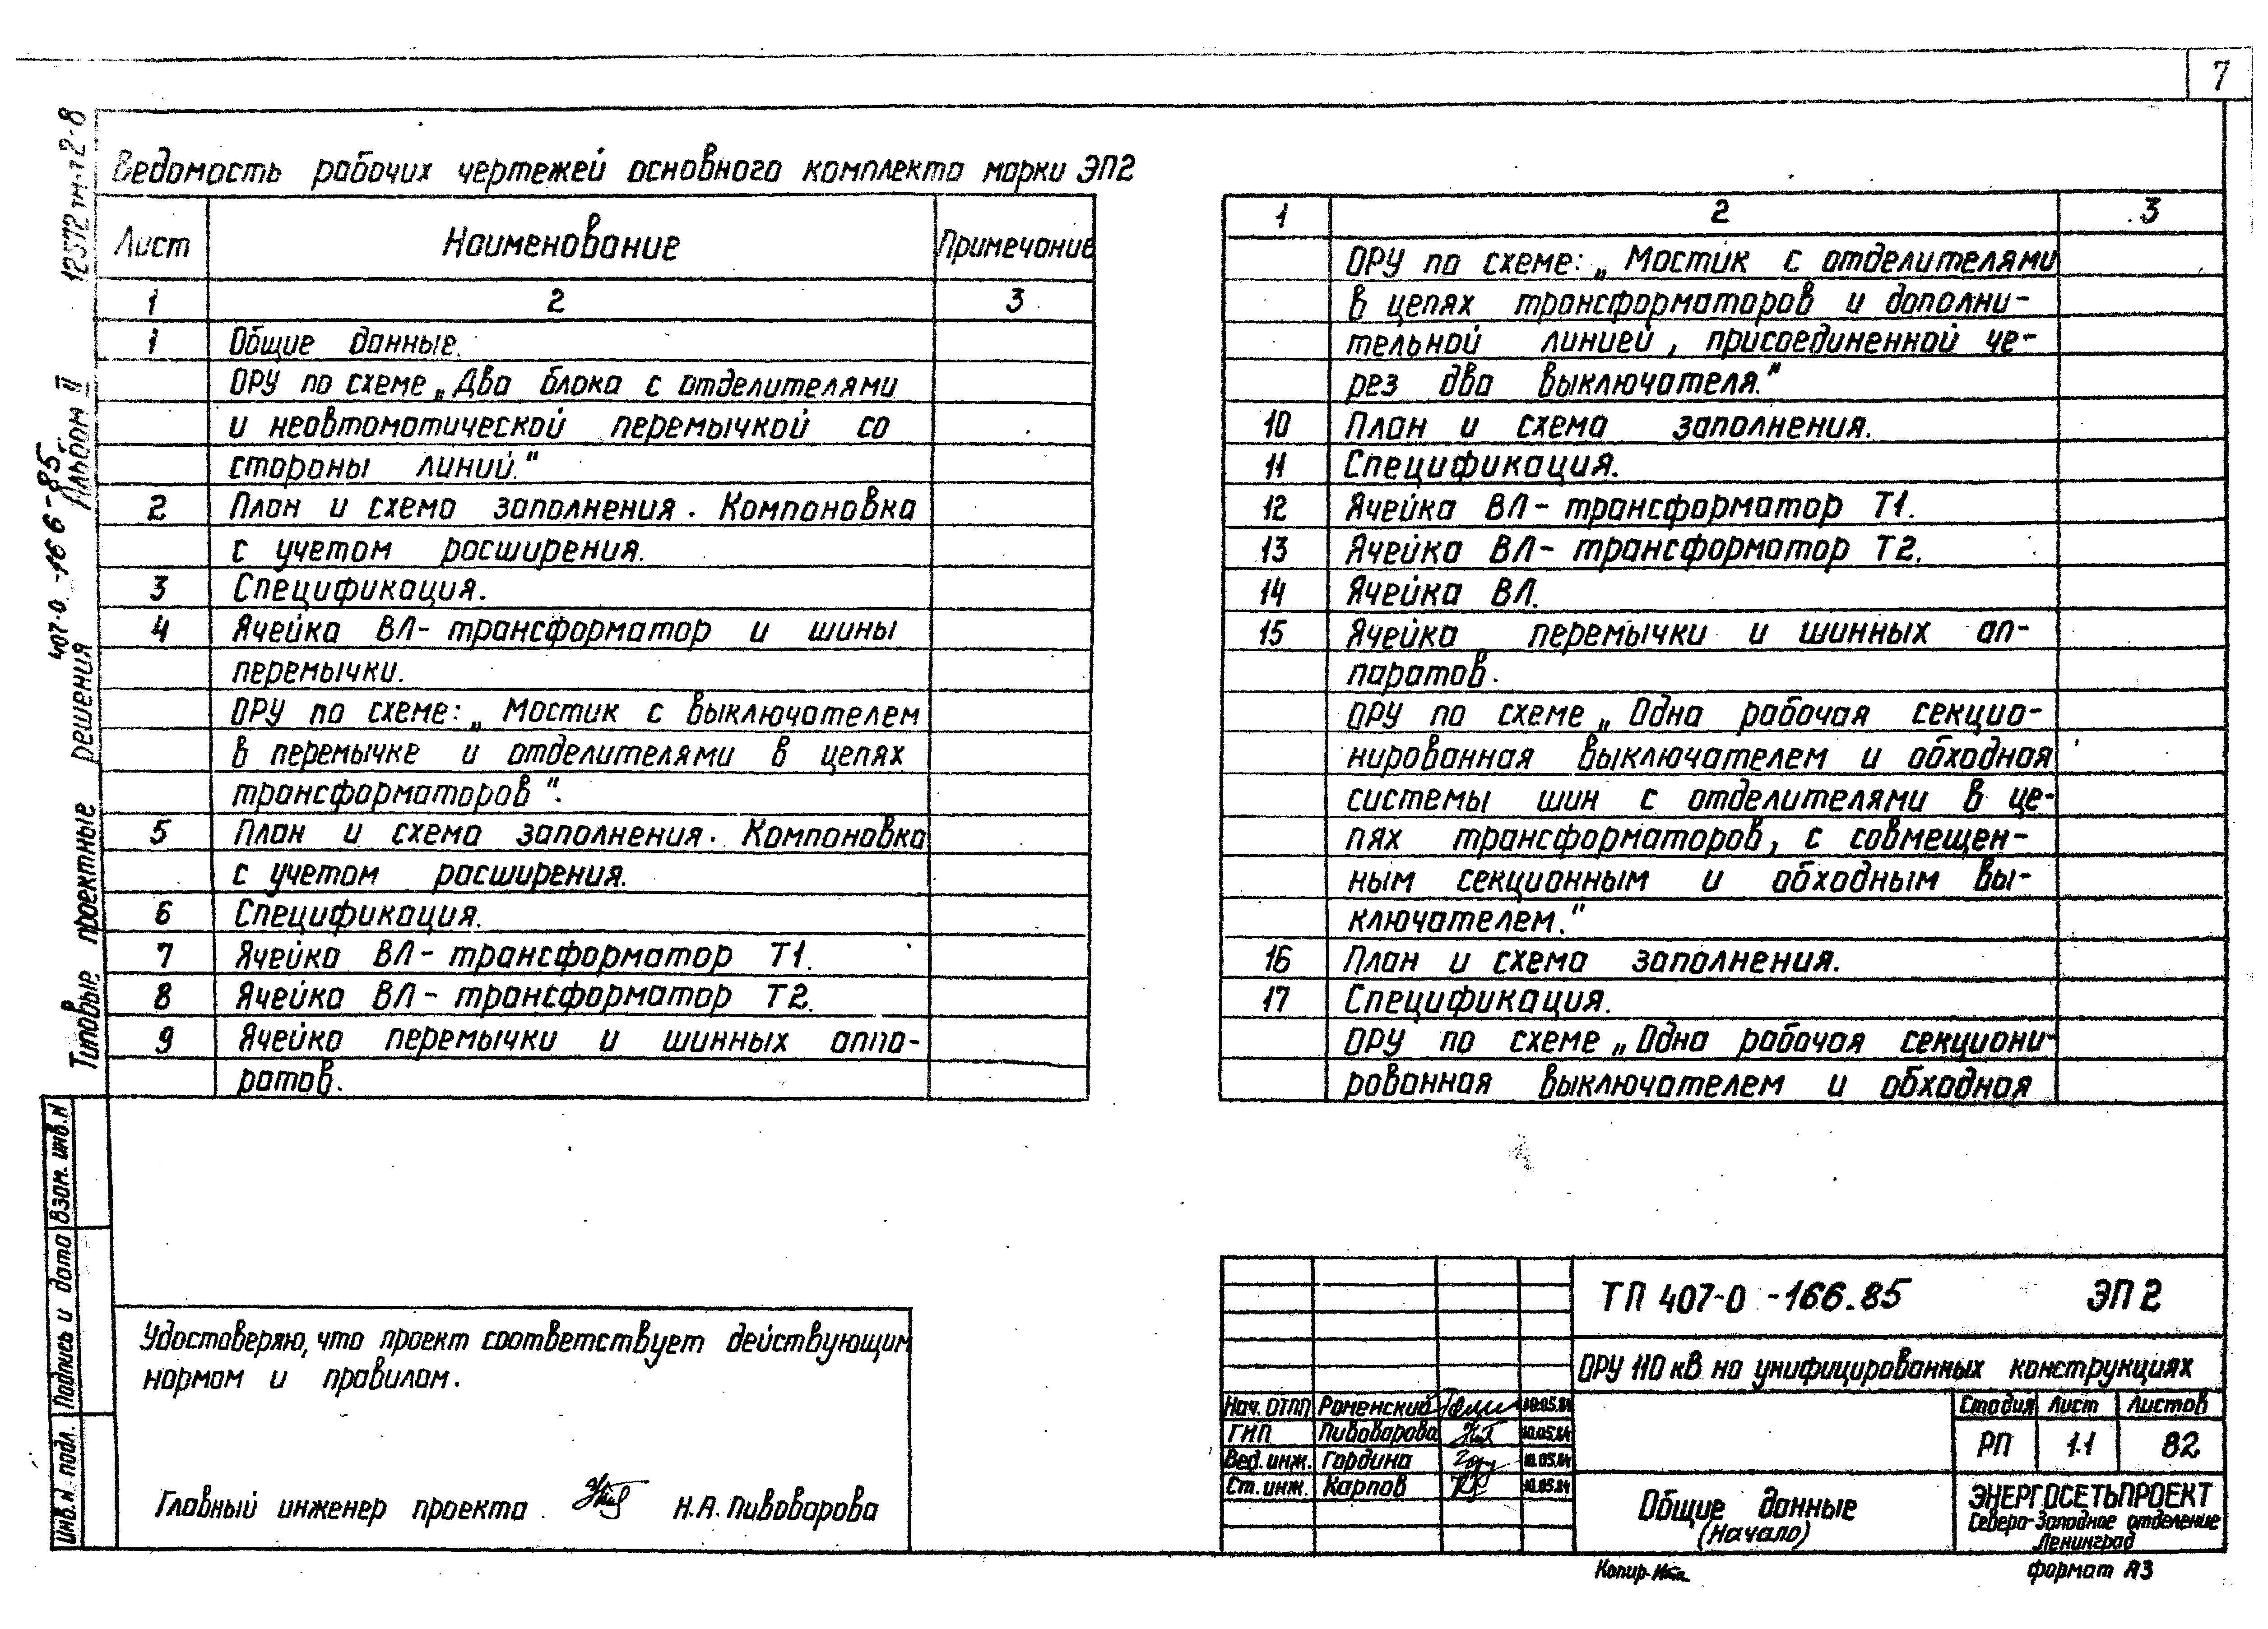 7
12572тм-т2-8
Альбом II
407-0-166-85
Типовые проектные решения
Ведомость рабочих чертежей основного комплекта марки ЭП2
Лист Наименование Примечание
1 2 3
1 Общие данные.
ОРУ по схеме „Два блока с отделителями
и неавтоматической перемычкой со
стороны линий."
2 План и схема заполнения. Компоновка
с учетом расширения.
3 Спецификация.
4 Ячейка ВЛ-трансформатор и шины
перемычки.
ОРУ по схеме: „Мостик с выключателем
в перемычке и отделителями в цепях
трансформаторов".
5 План и схема заполнения. Компоновка
с учетом расширения.
6 Спецификация.
7 Ячейка ВЛ-трансформатор Т1.
8 Ячейка ВЛ-трансформатор Т2.
9 Ячейка перемычки и шинных аппа-
ратов.
1 2 3
ОРУ по схеме: „Мостик с отделителями
в цепях трансформаторов и дополни-
тельной линией, присоединенной че-
рез два выключателя."
10 План и схема заполнения.
11 Спецификация.
12 Ячейка ВЛ-трансформатор Т1.
13 Ячейка ВЛ-трансформатор Т2.
14 Ячейка ВЛ.
15 Ячейка перемычки и шинных ап-
паратов.
ОРУ по схеме „Одна рабочая секцио-
нированная выключателем и обходная
системы шин с отделителями в це-
пях трансформаторов, с совмещен-
ным секционным и обходным вы-
ключателем."
16 План и схема заполнения.
17 Спецификация.
ОРУ по схеме „Одна рабочая секциони-
рованная выключателем и обходная
Взам. инв.N
Подпись и дата
Инв.N подл.
Удостоверяю, что проект соответствует действующим
нормам и правилам.
Главный инженер проекта Н.А. Пивоварова
ТП 407-0-166.85 ЭП2
ОРУ 110 кВ на унифицированных конструкциях
Нач. ОТПП Роменский 10.05.84
ГИП Пивоварова 10.05.84
Вед. инж. Гордина 10.05.84
Ст. инж. Карпов 10.05.84
Стадия Лист Листов
РП 1.1 82
Общие данные
(Начало)
ЭНЕРГОСЕТЬПРОЕКТ
Северо-Западное отделение
Ленинград
Копир-
формат А3